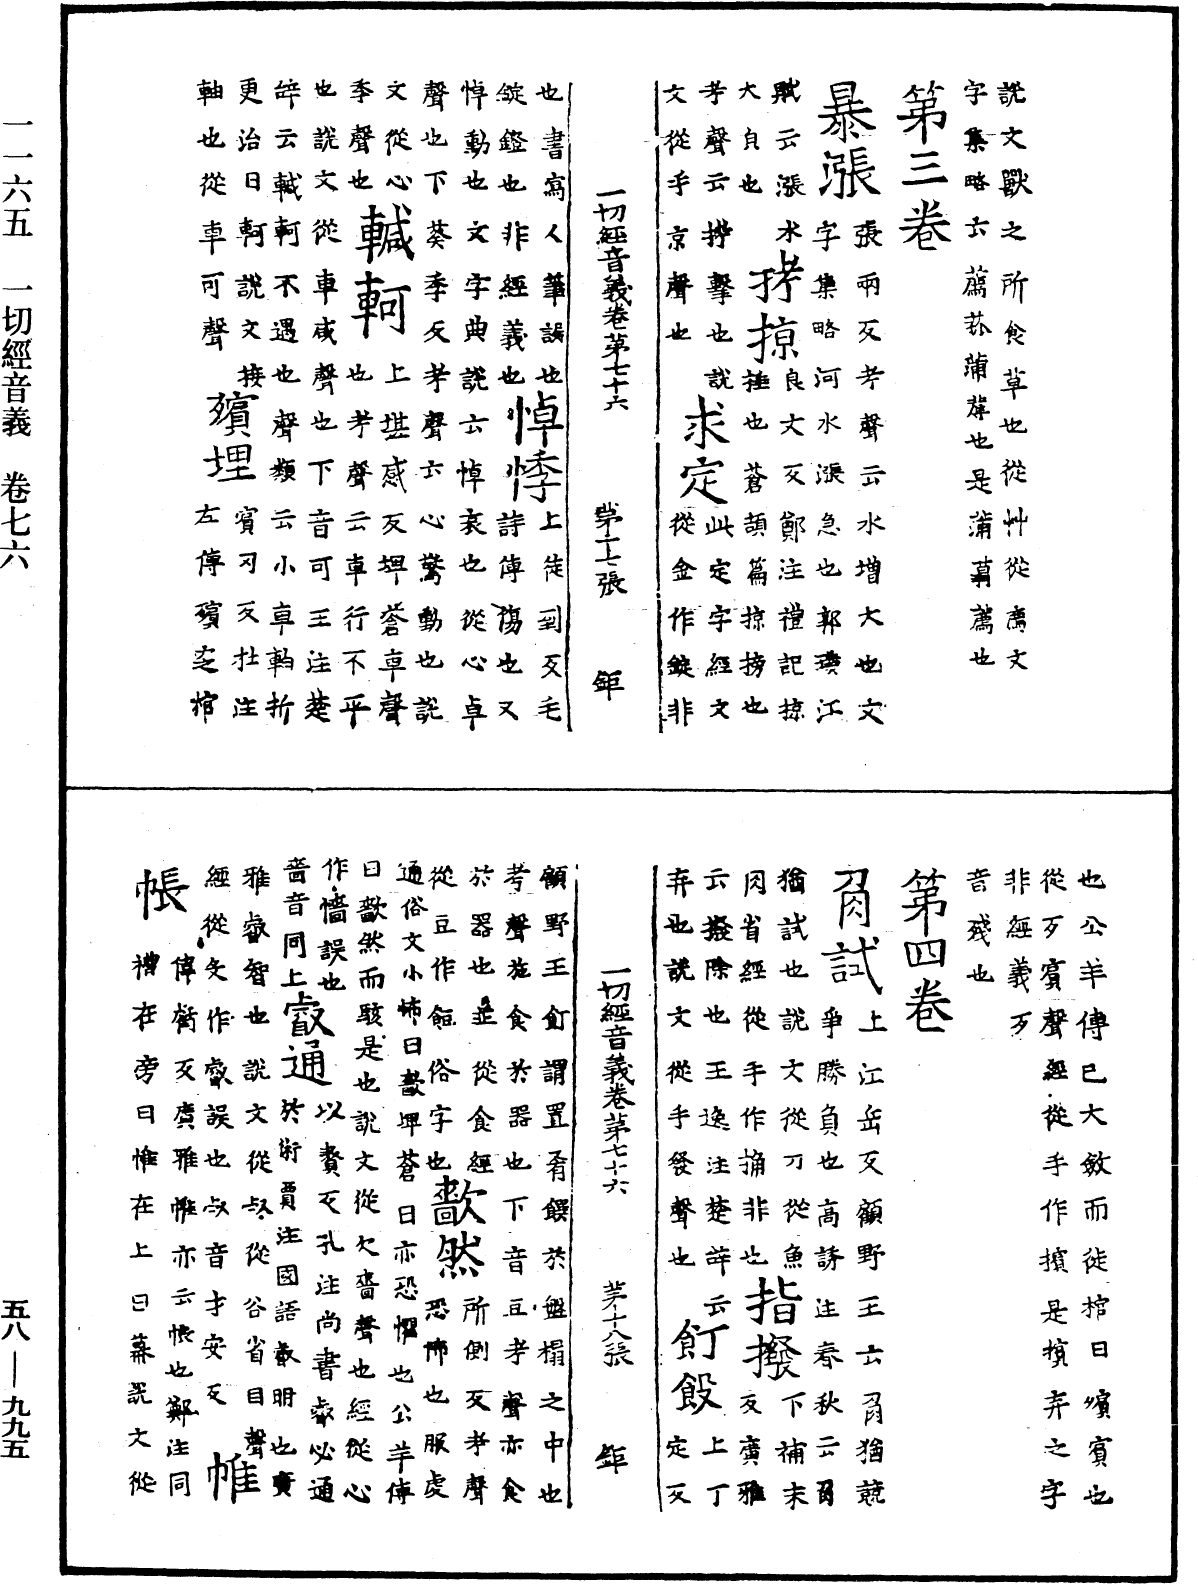 一一六五　一切經音義　卷七六
五八—九九五
說文獸之所食草也從艸從廌文
字集略云薦菰蒲葉也是蒲蒻薦也
第三卷
暴漲張兩反考聲云水增大也文
字集略河水漲急也郭璞江
賦云漲水
大皃也
拷掠良丈反鄭注禮記掠
捶也蒼頡篇掠搒也
考聲云搒擊也說
文從手京聲也
求定此定字經文
從金作錠非
一切經音義卷第七十六　第十七張　鉅
也書寫人筆誤也
錠鐙也非經義也
悼悸上徒到反毛
詩傳傷也又
悼動也文字典說云悼哀也從心卓
聲也下葵季反考聲云心驚動也說
文從心
季聲也
轗軻上堪感反埤蒼卓聲
也考聲云車行不平
也說文從車咸聲也下音可王注楚
辭云轗軻不遇也聲類云小車軸折
更治曰軻說文接
軸也從車可聲
殯埋賓刃反杜注
左傳殯窆棺
也公羊傳已大斂而徒棺曰殯賓也
從歹賓聲經從手作擯是擯弃之字
非經義歹
音殘也
第四卷
觓試上江岳反顧野王云觓猶競
爭勝負也高誘注春秋云觓
猶試也說文從刀從魚
冈省經從手作捔非也
指撥下補末
反廣雅
云撥除也王逸注楚辭云
弃也說文從手發聲也
飣餖上丁
定反
一切經音義卷第七十六　第十八張　鉅
顧野王飣謂置肴饌於盤榻之中也
考聲施食於器也下音豆考聲亦食
於器也並從食經
從豆作䬦俗字也
歗然所倒反考聲
恐怖也服虔
通俗文小怖曰歗埤蒼曰亦恐懼也公羊傳
曰歗然而駭是也說文從欠嗇聲也經從心
作懎誤也
嗇音同上
叡通以贅反孔注尚書叡必通
於術賈注國語叡明也廣
雅叡智也說文從𣦼從谷省目聲
經從攵作敹誤也𣦼音才安反
帷
帳偉龻反廣雅帷亦云帳也鄭注同
禮在旁曰帷在上曰幕說文從